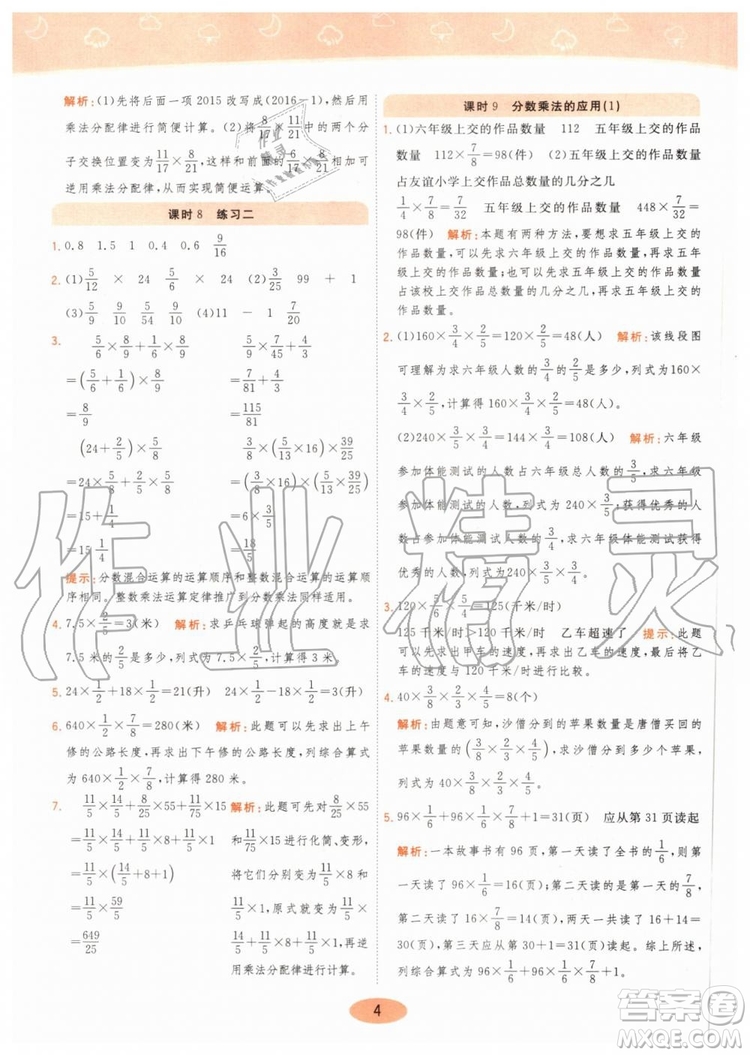 解析:(1)先将后面一项 2015 改写成(2016-1),再用
乘法分配律进行简便计算。(2)将8/21×11/15的两个分
子交换位置为11/21×8/15,再和前面的11/21×7/15逆
使用乘法分配律,从而简便运算。
课时 8 练习二
1. 0.8 1.5 1 0.4 0.6 9/16
2. (1)5/12 × 24 5/9 × 24 (2)5/24 99 + 1
(3)5/9 10/9 50/9 (4)11 - 1 5/9
3. 5/6×8/9+1/6×8/9
=(5/6+1/6)×8/9
=8/9
(24+2/5)×5/8
=24×5/8+2/5×5/8
=15+1/4
=15 1/4
7/81+4/9×3
=7/81+4/3
=115/81
(3/8×16)×(5/13×39/25)
=6×3/5
提示:分数混合运算的运算顺序和整数混合运算的运算
序相同。整数乘法运算定律推广到分数乘法同样适用。
4. 7.5×2/5=3(米) 解析:求乒乓球弹起的高度就是求
7.5 米的2/5是多少,列式为 7.5×2/5,计算得 3 米。
5. 24×1/2+18×1/2=21(升) 24×1/2-18×1/2=3(升)
6. 640×1/2×7/8=280(米) 解析:此题可先求出上午
修的公路长度,再求出下午修的公路长度,列综合算式
为 640×1/2×7/8,计算得 280 米。
7. 11/5×14/5+8/75×55+11/75×15
=11/5×14/5+11/5×8+11/5×1
=11/5×(14/5+8+1)
=11/5×59/5
=649/25
解析:此题可先对8/75×55
和11/75×15 进行化简、变形,
将它们分别变成11/5×8 和
11/5×1,原式就变成11/5×
14/5+11/5×8+11/5×1,再逆
用乘法分配律进行简算。
课时 9 分数乘法的应用(1)
1. (1)六年级上交的作品数量 112 五年级上交的作品
数量 112×7/8=98(件) (2)五年级上交的作品数量
占友谊小学上交作品总数量的几分之几
1/4×7/8=7/32 五年级上交的作品数量 448×7/32=
98(件) 解析:本题有两种方法,要想求五年级上交的
作品数量,可以先求六年级上交的作品数量,再求五年
级上交的作品数量;也可以先求五年级上交的作品数量
占该校上交作品总数量的几分之几,再求五年级上交的
作品数量。
2. (1)160×3/4×2/5=120×2/5=48(人) 解析:该线段图
可理解为求六年级人数的3/4的2/5是多少,列式为160×
3/4×2/5,计算得 48 人。
(2)240×3/5×3/4=144×3/4=108(人) 解析:六年级
参加体能测试的人数占六年级总人数的3/5,求六年级
参加体能测试的人数,列式为 240×3/5;获得优秀的人
优秀的人数,列式为 240×3/5×3/4,计算得 108 人。
3. 120×25/24=125(千米/时)
125 千米/时>120 千米/时 乙车超速了 提示:本
题可以先求出甲车的速度,再求出乙车的速度,最后将
乙车的速度与 120 千米/时进行比较。
4. 40×3/8×2/3×4/5=8(个)
解析:由题意可知,沙僧吃的苹果数量是唐僧买回的
5. 96×1/6+96×1/6×7/8+1=31(页) 应从第 31 页读起
解析:一本故事书有 96 页,第一天读了全书的1/6,则
第一天读了 96×1/6=16(页),第二天读的是第一天的7/8,
第二天读了 16×7/8=14(页),两天一共读了 16+14=
30(页),第三天应从第 30+1=31(页)读起。综上所述,
列综合算式为 96×1/6+96×1/6×7/8+1=31(页)。
4
作业精灵
答案圈